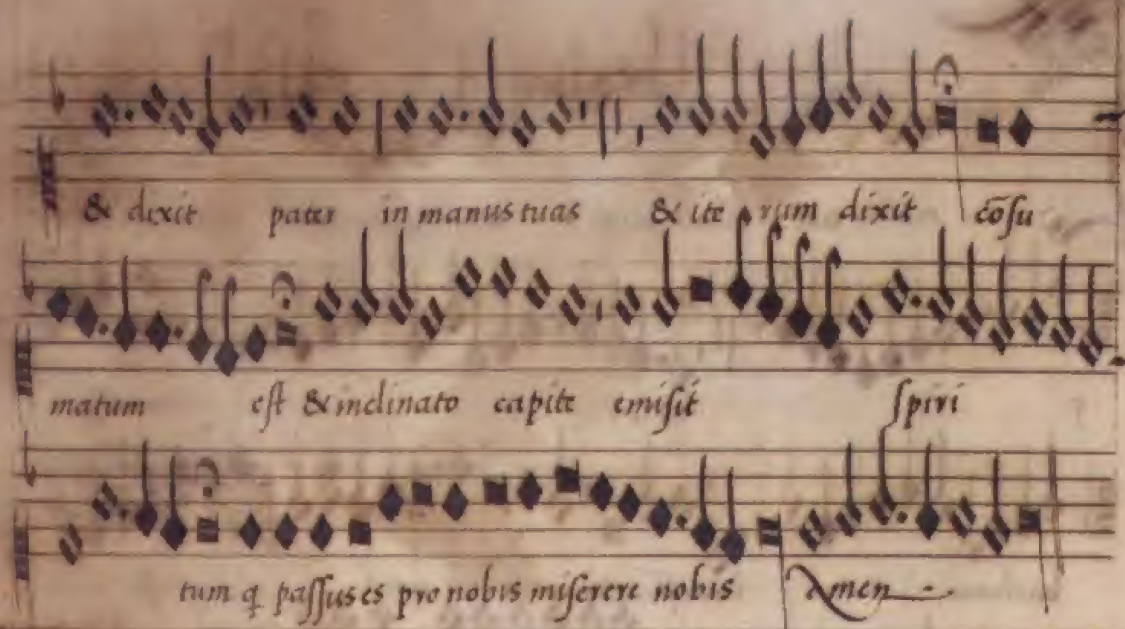 & dixit pater in manus tuas & ite rum dixit cōsu
matum est & inclinato capite emisit spiri
tum q passus es pro nobis miserere nobis Amen